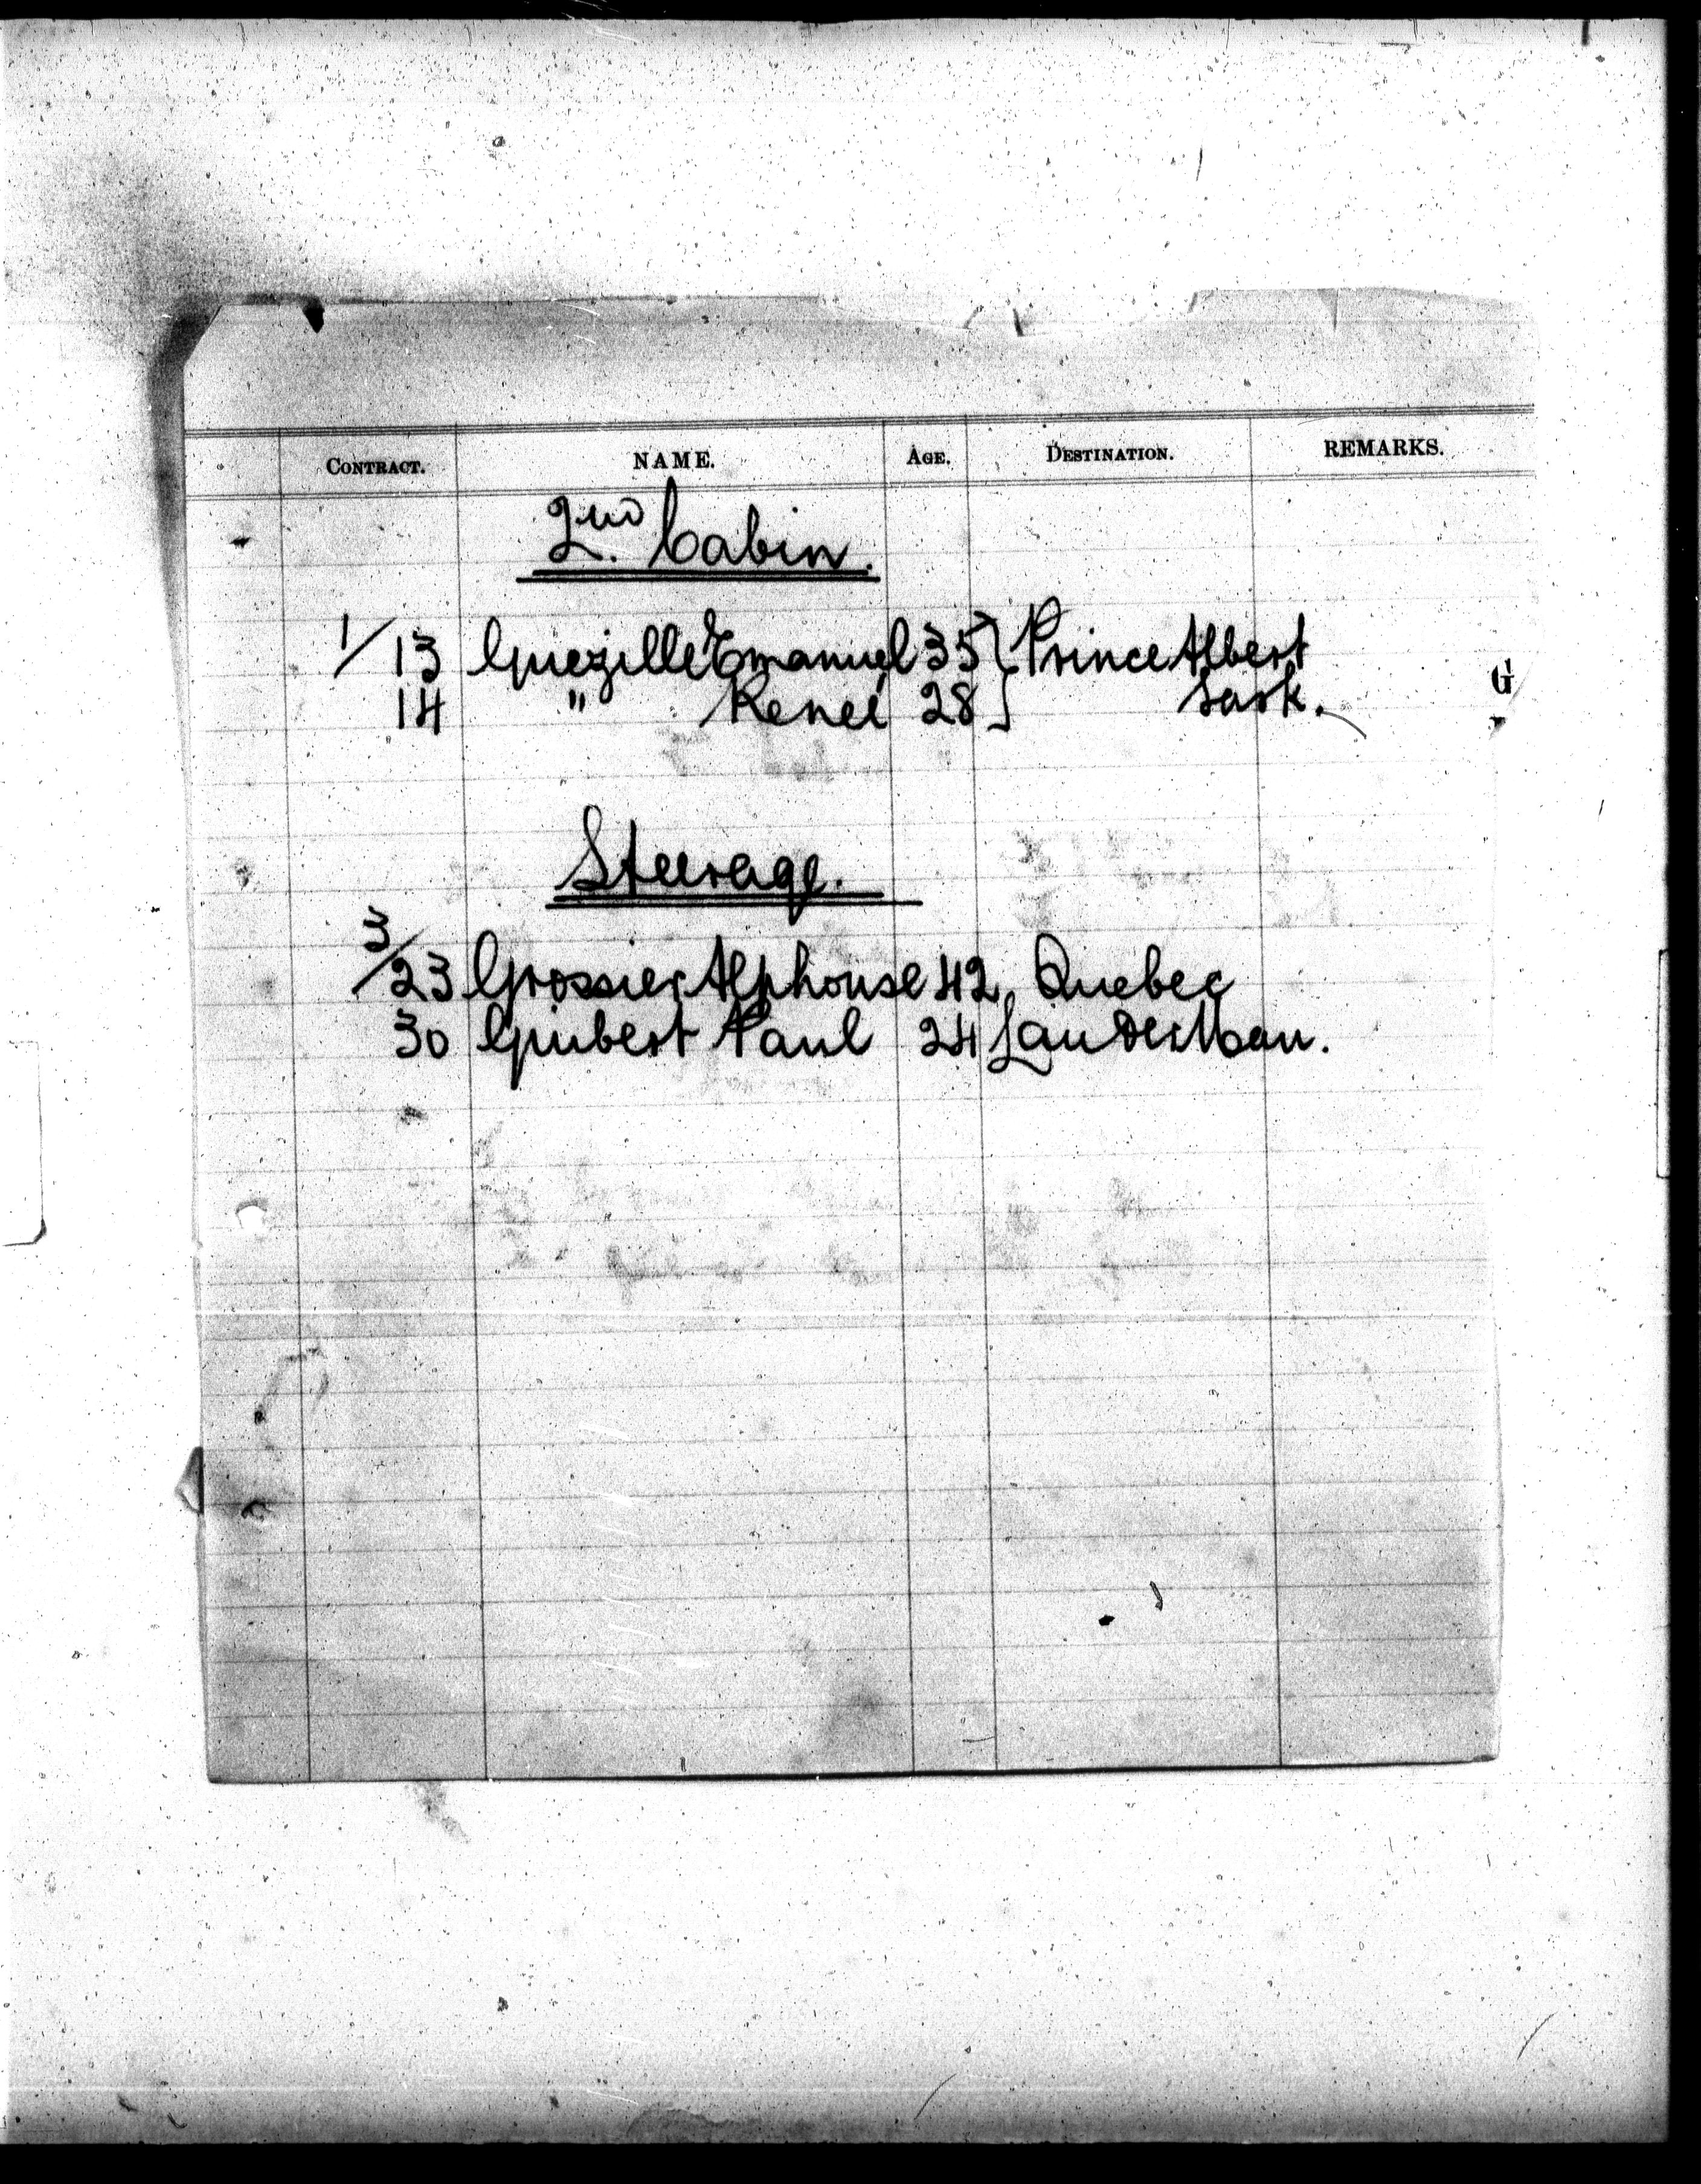 CONTRACT. NAME. AGE. DESTINATION. REMARKS.
2nd. Cabin.
1/13 Guezille Emanuel 35 } Prince Albert
14 " Reneé 28 } Sask.
G
Steerage.
3/23 Grossier Alphonse 42 Quebec
30 Guibert Paul 24 Lauder Man.